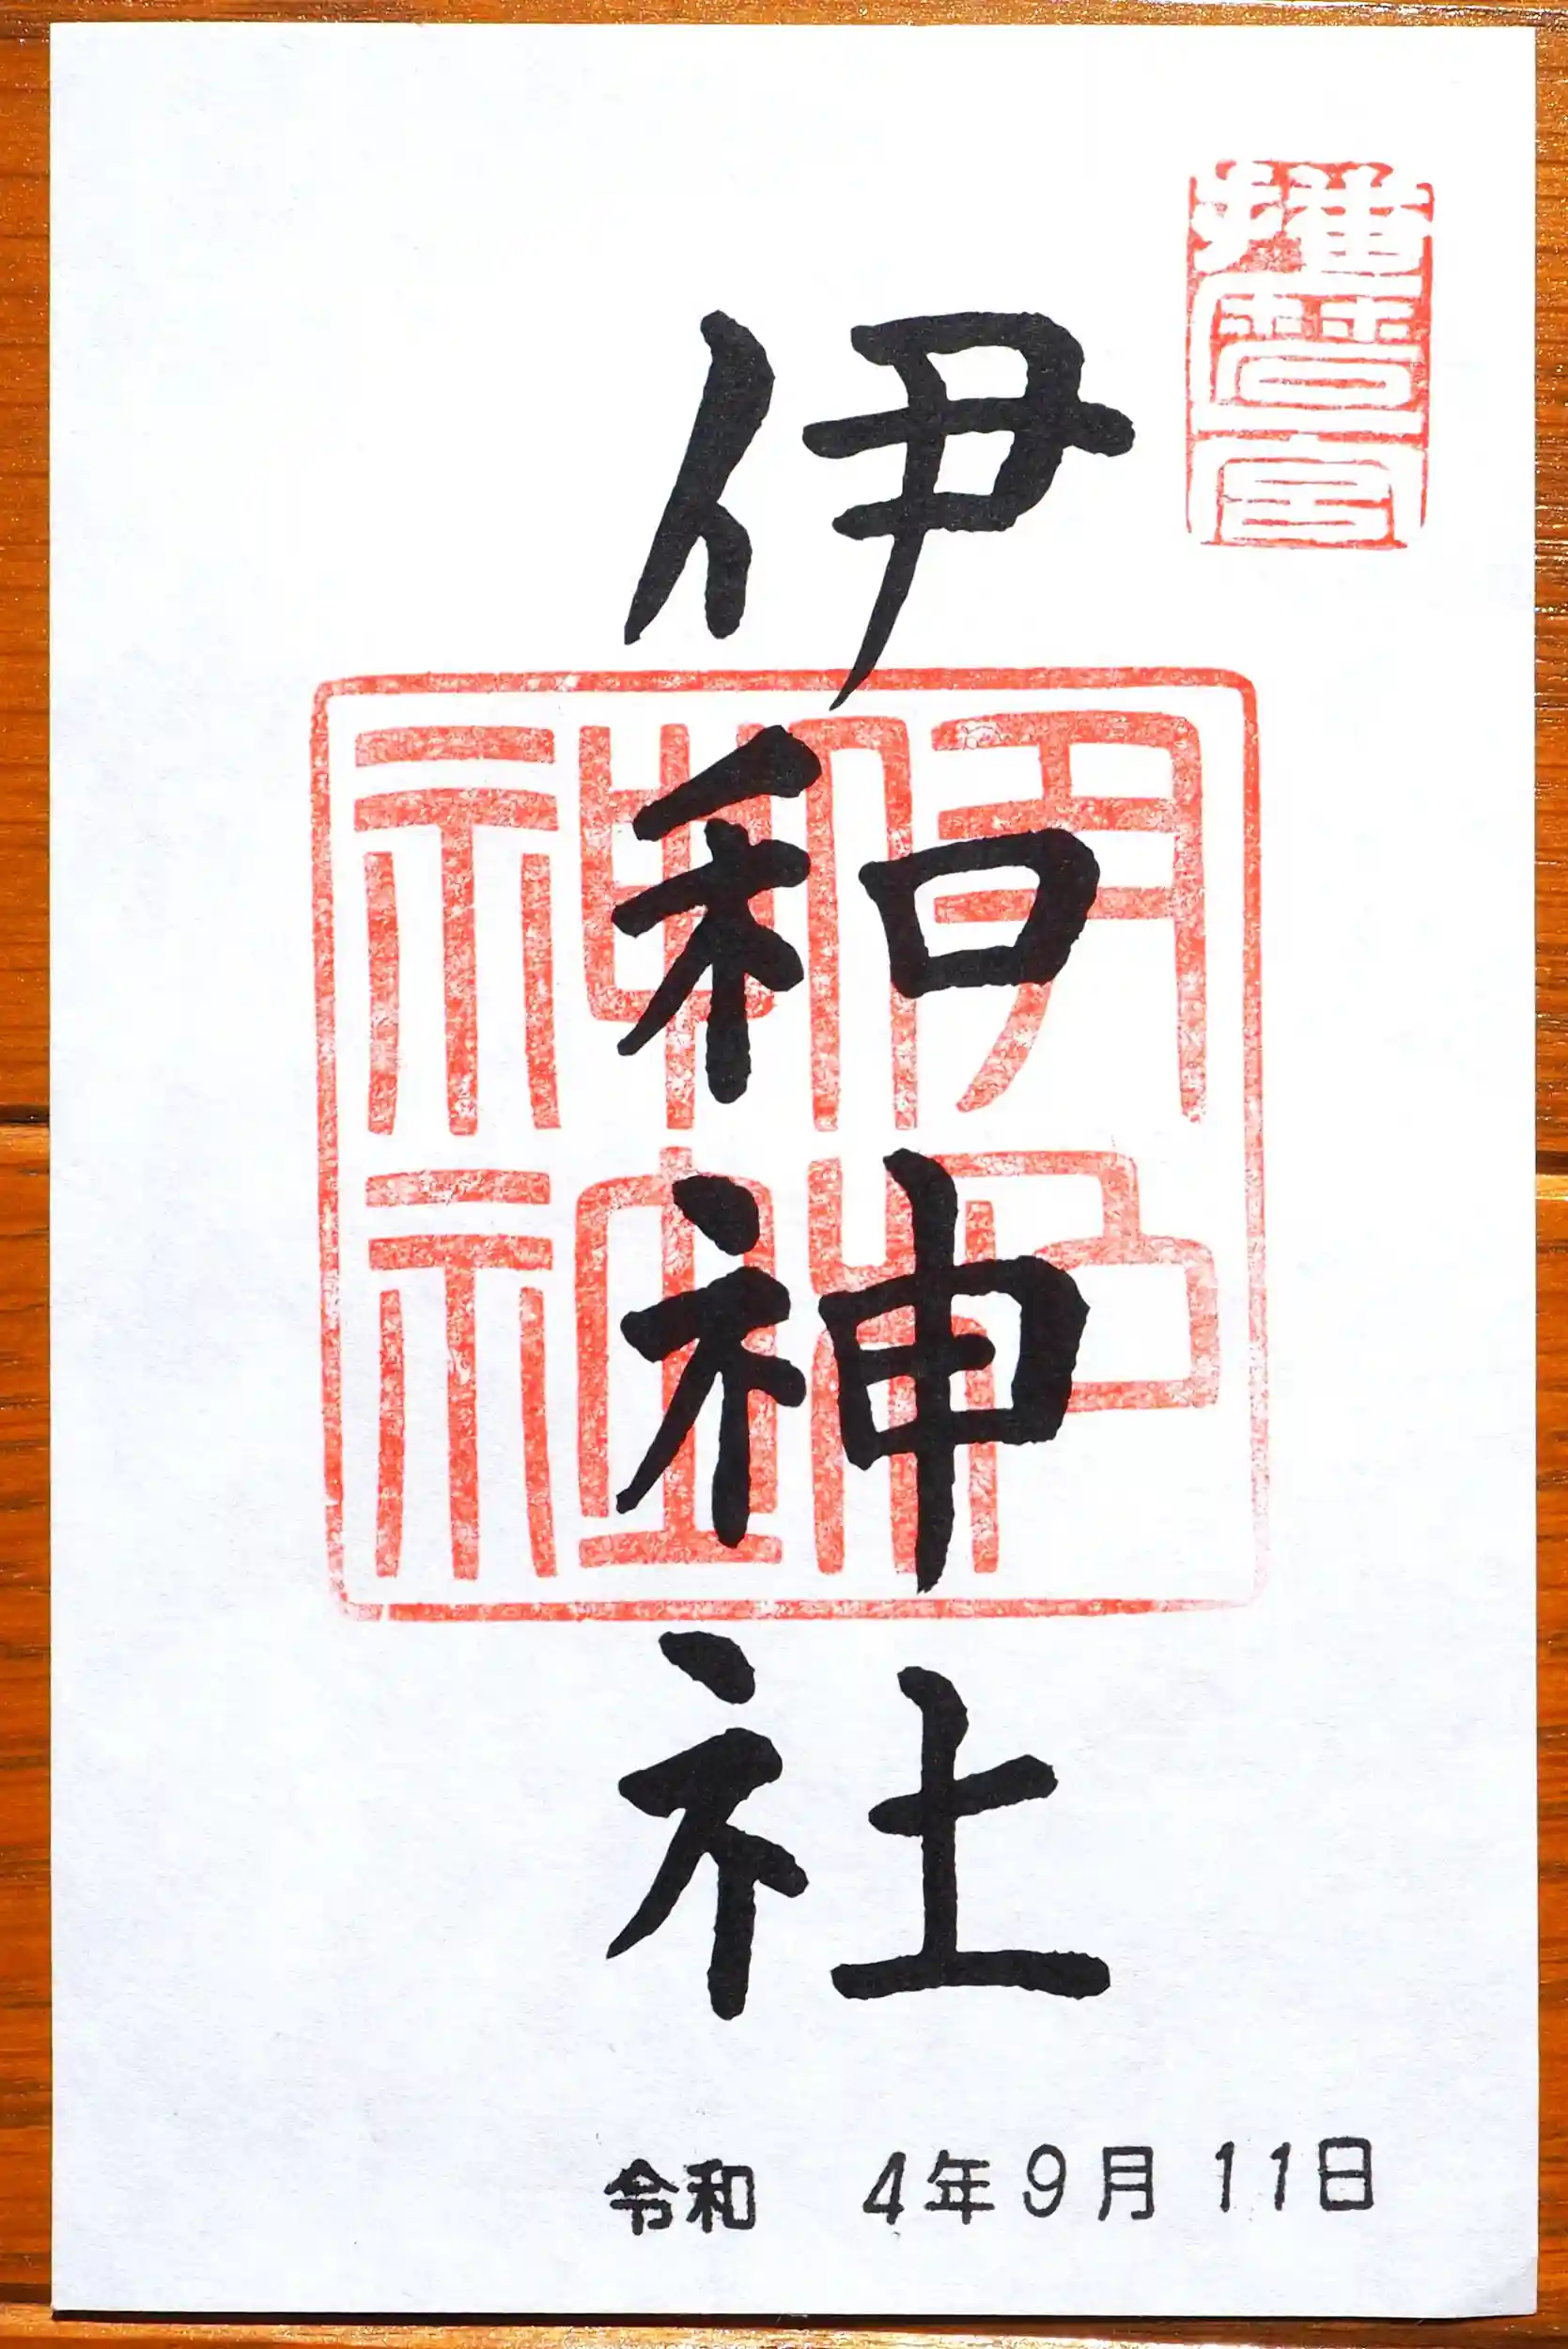 播磨一宮
伊和神社
伊和神社
令和 4年9月11日